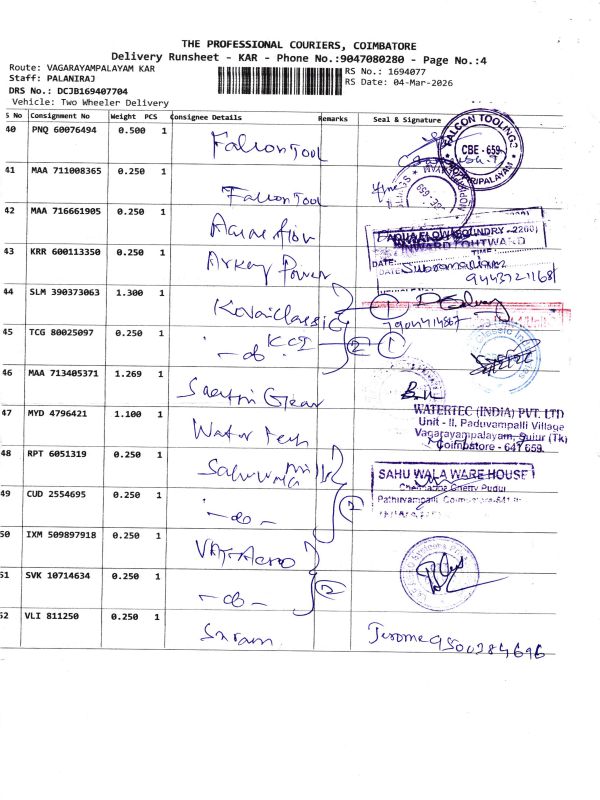 THE PROFESSIONAL COURIERS, COIMBATORE
Delivery Runsheet - KAR - Phone No.:9047080280 - Page No.:4
Route: VAGARAYAMPALAYAM KAR
Staff: PALANIRAJ
DRS No.: DCJB169407704
Vehicle: Two Wheeler Delivery
RS No.: 1694077
RS Date: 04-Mar-2026
S No Consignment No Weight PCS Consignee Details Remarks Seal & Signature
40 PNQ 60076494 0.500 1 Falcon Tool
FALCON TOOLING
CBE - 659
41 MAA 711008365 0.250 1 Falcon Tool
42 MAA 716661905 0.250 1
AQUA FLOW FOUNDRY
INWARD / OUTWARD
DATE: TIME:
DATE:
43 KRR 600113350 0.250 1 Arkey Power
9443721168
44 SLM 390373063 1.300 1 Kovai Classic 1
7904414567
45 TCG 80025097 0.250 1 - do - KCI 2 1
46 MAA 713405371 1.269 1 Gear
47 MYD 4796421 1.100 1 Water Tech
WATERTEC (INDIA) PVT. LTD
Unit - II, Paduvampalli Village
Vagarayampalayam, Sulur (Tk)
Coimbatore - 641 659.
48 RPT 6051319 0.250 1 Sahuwala
SAHU WALA WARE HOUSE
Pudur
49 CUD 2554695 0.250 1 - do - 2
50 IXM 509897918 0.250 1
51 SVK 10714634 0.250 1 - do - 2
52 VLI 811250 0.250 1 Sriram Jerome 9500284696